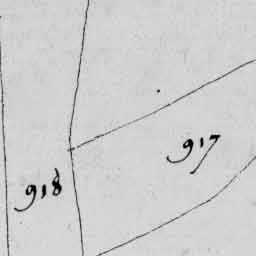 917
918